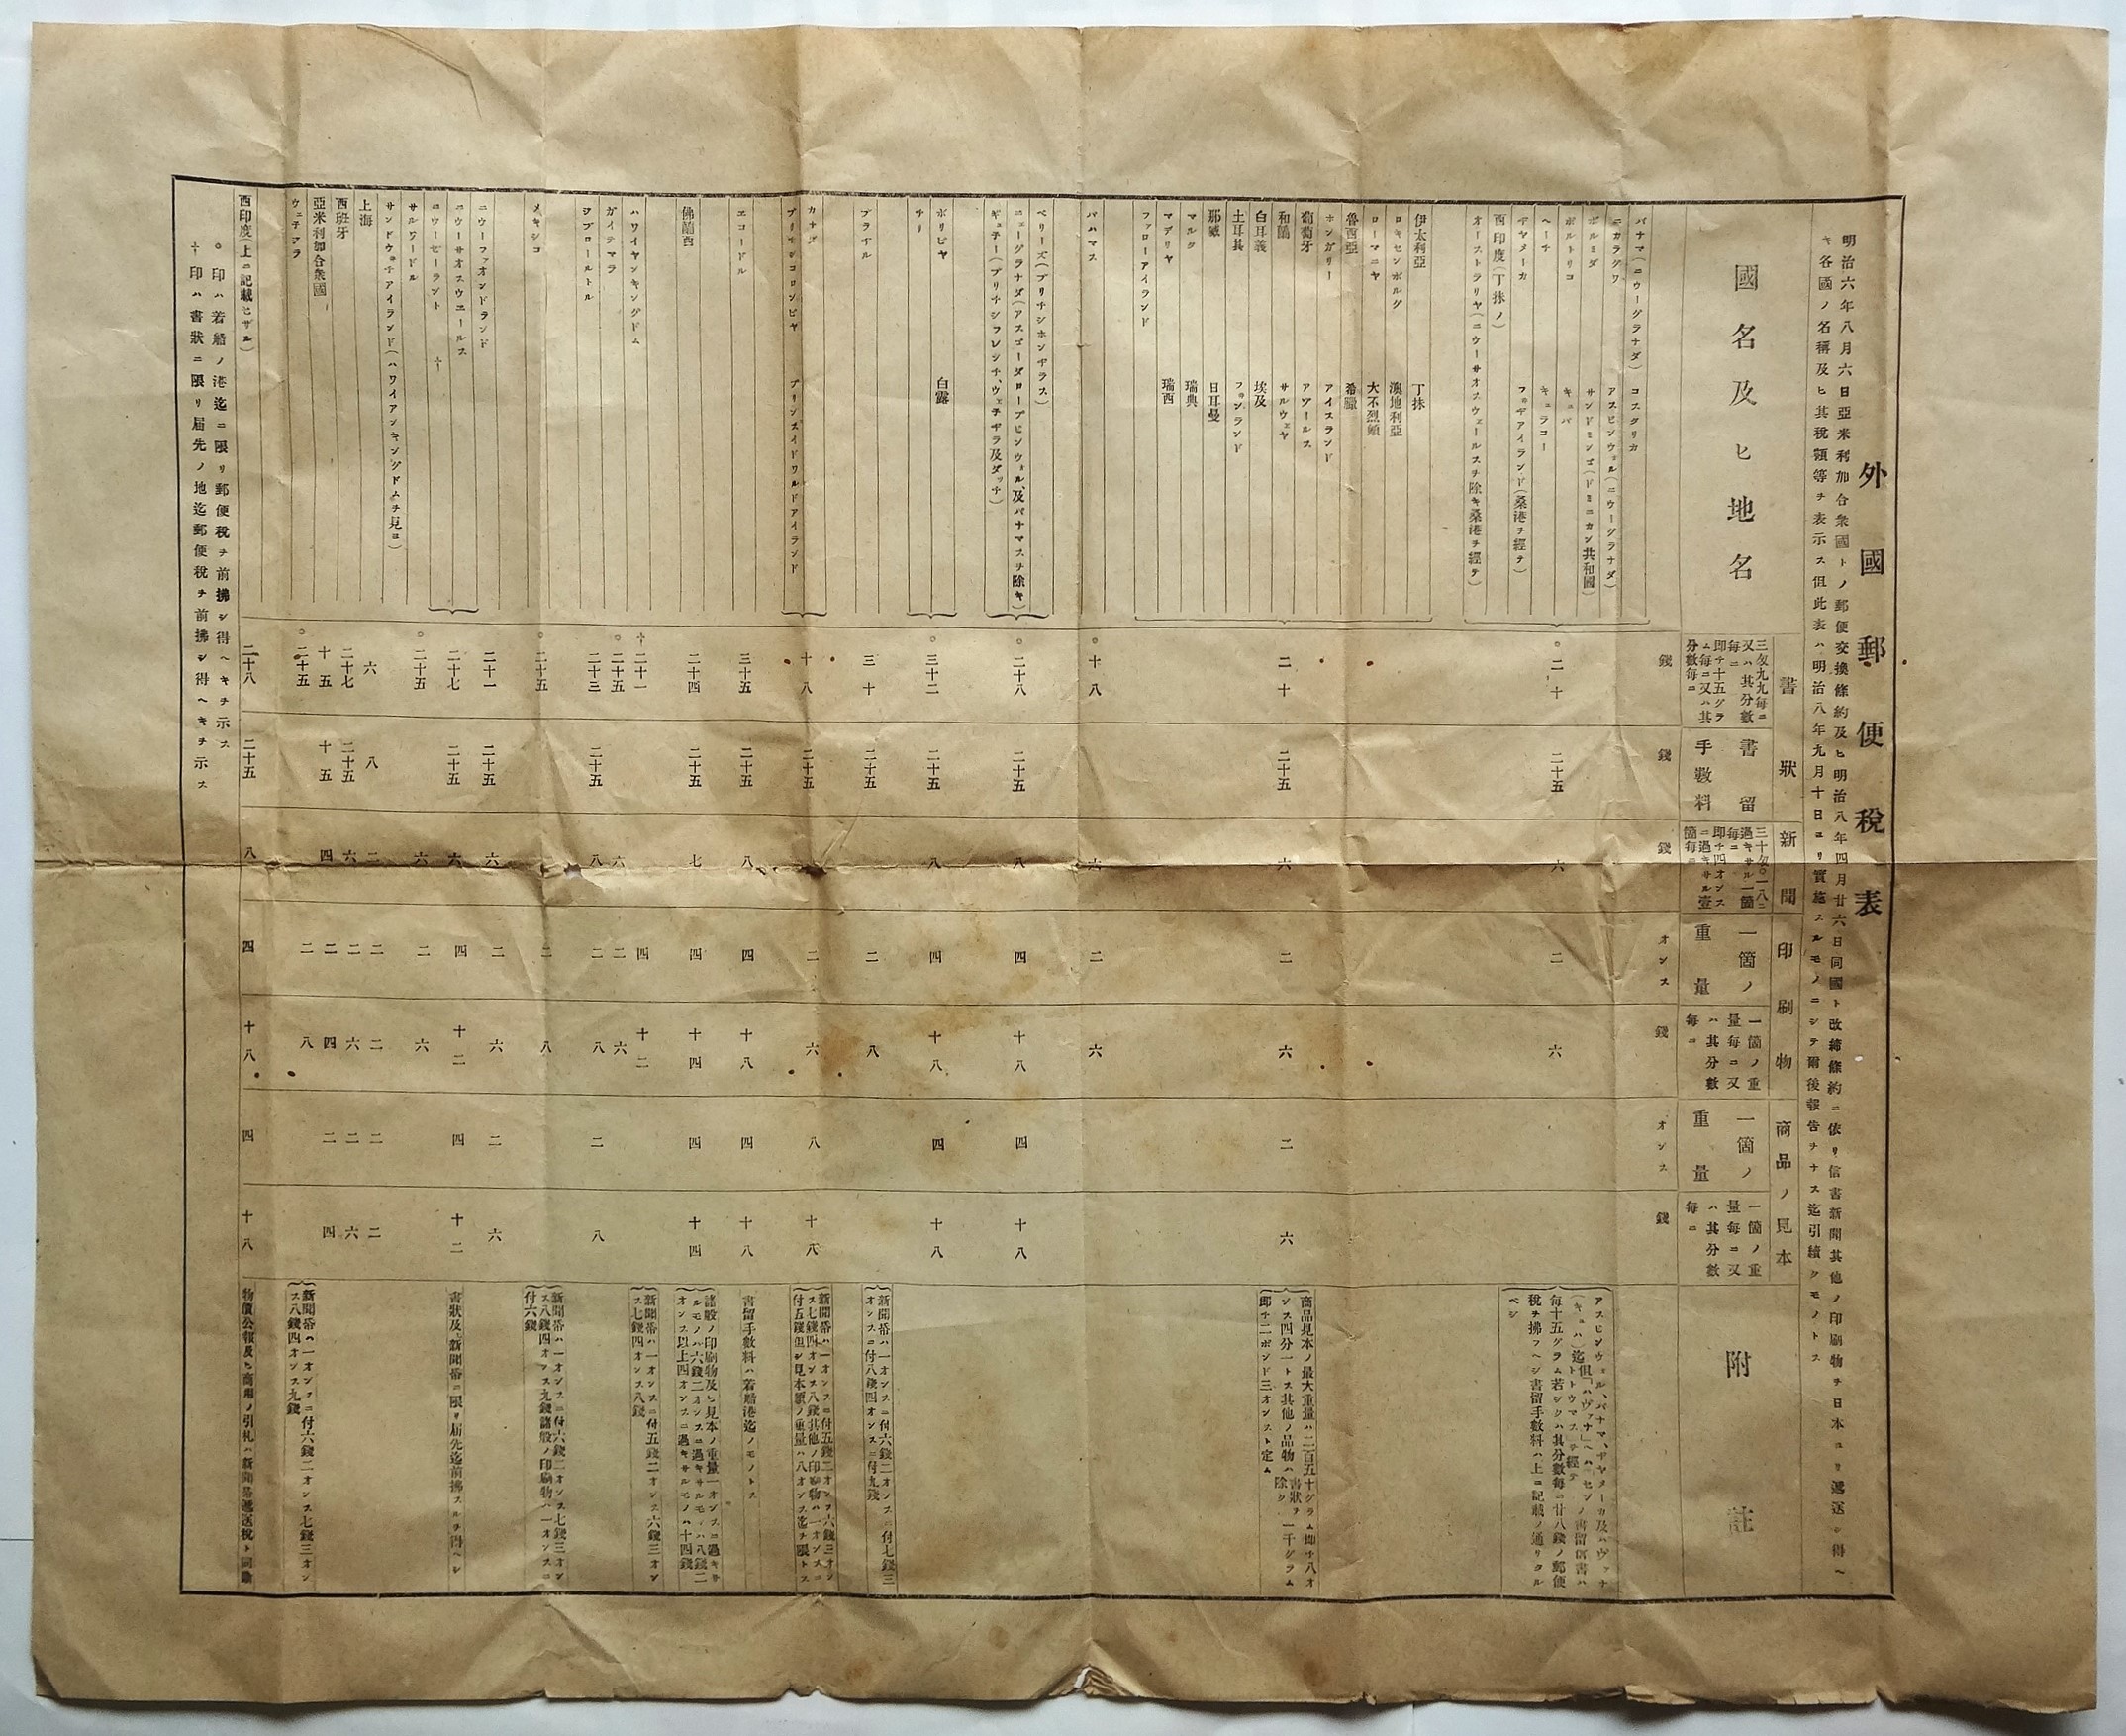 外國郵便稅表
明治六年八月六日亞米利加合衆國トノ郵便交換條約及ヒ明治八年四月廿六日同國ト改締條約ニ依リ信書新聞其他ノ印刷物ヲ日本ヨリ遞送シ得ヘ
キ各國ノ名稱及ヒ其稅額等ヲ表示ス但此表ハ明治八年九月十日ヨリ實施スルモノニシテ爾後報告ヲナス迄引續クモノトス
國名及ヒ地名
書狀
新聞
印刷物
商品ノ見本
附註
三匁九九毎ニ
又ハ其分數
毎ニ
即チ十五グラ
ム毎ニ又ハ其
分數毎ニ
書留
手數料
三十匁〇一八ニ
過キサル一箇
毎ニ
即チ四オンス
ニ過キサル壹
箇毎ニ
一箇ノ
重量
一箇ノ重
量毎ニ又
ハ其分數
毎ニ
一箇ノ
重量
一箇ノ重
量毎ニ又
ハ其分數
毎ニ
錢
錢
錢
オンス
錢
オンス
錢
パナマ(ニウーグラナダ) コスタリカ
ニカラグワ アスピンウォル(ニウーグラナダ)
ボルミダ サンドミンゴ(ドミニカン共和國)
ポルトリコ キュバ
ヘーチ キュラコー
ヂヤメーカ フ井ヂアイランド(桑港ヲ經テ)
西印度(丁抹ノ)
オーストラリヤ(ニウーサオスウェールスヲ除キ桑港ヲ經テ)
○二十 二十五 六 二 六
毎十五グラム若シクハ其分數毎ニ廿八錢ノ郵便
稅ヲ拂フヘシ書留手數料ハ上ニ記載ノ通リタル
ベシ
伊太利亞 丁抹
ロキセンボルグ 澳地利亞
ローマニヤ 大不列顛
魯西亞 希臘
ホンガリー アイスランド
葡萄牙 アゾールス
和蘭 サルウェヤ
白耳義 埃及
土耳其 フ井ンランド
那威 日耳曼
マルタ 瑞典
マデリヤ 瑞西
ファローアイランド
二十 二十五 六 二 六 二 六
商品見本ノ最大重量ハ二百五十グラム即チ八オ
ンス四分一トス其他ノ品物ハ書狀ヲ除ク一千グラム
即チ二ポンド三オンスト定ム
バハマス
○十八 六 二 六
ベリーズ(ブリチシホンヂラス)
ニューグラナダ(アスゴーダロープピンウォル、及パナマスヲ除キ)
ギュチー(ブリチシフレンチ、ウェチヂラ及ダッチ)
○二十八 二十五 八 四 十八 四 十八
ボリビヤ 白露
チリ
○三十二 二十五 八 四 十八 四 十八
ブラヂル
三十 二十五 二 八
新聞帯ハ一オンスニ付六錢二オンスニ付七錢三
オンスニ付八錢四オンスニ付九錢
カナダ
ブリチシコロンビヤ プリンスイドワルドアイランド
十八 二十五 二 六 八 十八
新聞帯ハ一オンスニ付五錢二オンス六錢三オン
ス七錢四オンス八錢其他ノ印刷物ハ一オンスニ
付五錢但シ見本類ノ重量ハ八オンス迄ヲ限トス
エコードル
三十五 二十五 八 四 十八 四 十八
書留手數料ハ若船港迄ノモノトス
佛蘭西
二十四 二十五 七 四 十四 四 十四
諸般ノ印刷物及ヒ見本ノ重量一オンスニ過キサ
ルモノハ六錢二オンスニ過キサルモノハ八錢二
オンス以上四オンスニ過キサルモノハ十四錢
ハワイヤンキングドム
†二十一 四 十二
新聞帯ハ一オンスニ付五錢二オンス六錢三オン
ス七錢四オンス八錢
ガイテマラ
○二十五 六 二 六
ヂブロールトル
二十三 二十五 八 二 八 二 八
メキシコ
○二十五 二 八
新聞帯ハ一オンスニ付六錢二オンス七錢三オン
ス八錢四オンス九錢諸般ノ印刷物ハ一オンスニ
付六錢
ニウーファオンドランド
二十一 二十五 六 二 六 二 六
ニウーサオスウエールス
ニウーゼーラント †
二十七 二十五 六 四 十二 四 十二
書狀及新聞帯ニ限リ届先迄前拂スルヲ得ヘシ
サルワードル
○二十五 六 二 六
サンドウ井チアイランド(ハワイアンキングドムヲ見ヨ)
上海
六 八 二 二 二 二 二
西班牙
二十七 二十五 六 二 六 二 六
亞米利加合衆國
十五 十五 四 二 四 二 四
ウェチヂラ
○二十五 二 八
新聞帯ハ一オンスニ付六錢二オンス七錢三オン
ス八錢四オンス九錢
西印度(上ニ記載セザル)
二十八 二十五 八 四 十八 四 十八
物價公報及ヒ商用ノ引札ハ新聞帯遞送稅ト同斷
○印ハ若船ノ港迄ニ限リ郵便稅ヲ前拂シ得ヘキヲ示ス
†印ハ書狀ニ限リ届先ノ地迄郵便稅ヲ前拂シ得ヘキヲ示ス